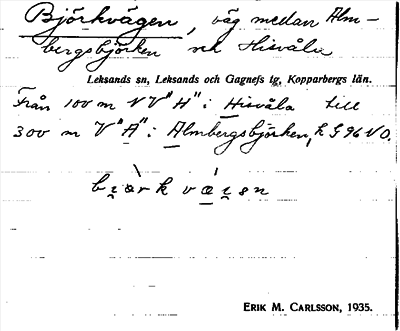 Björkvägen, väg medan Alm-
bergsbjörken och Hisvåla
Leksands sn, Leksands och Gagnefs tg, Kopparbergs län.
Från 100 m NV "H" i Hisvåla till
300 m V "A" i Almbergsbjörken, k G 96 NO.
ERIK M. CARLSSON, 1935.